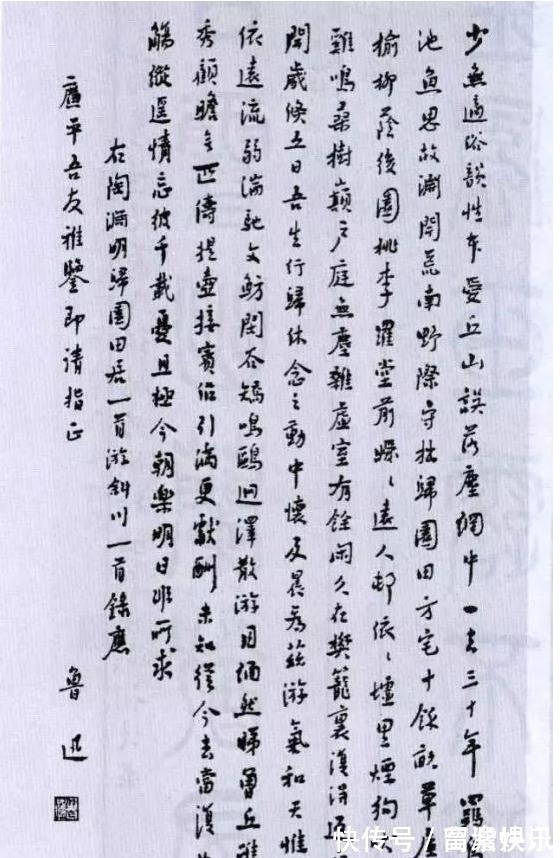 少無適俗韻性本愛丘山誤落塵網中一去三十年羈
池魚思故淵開荒南野際守拙歸園田方宅十餘畝草
榆柳蔭後園桃李羅堂前曖〻遠人邨依〻墟里煙狗
雞鳴桑樹巔戶庭無塵雜虛室有餘閑久在樊籠裏復得返
開歲倏五日吾生行歸休念之動中懷及晨為茲游氣和天惟
依遠流弱湍馳文魴閑谷矯鳴鷗迥澤散游目緬然睇曾丘雖
秀顧瞻無匹儔提壺接賓侶引滿更獻酬未知從今去當復
觴縱遙情忘彼千載憂且極今朝樂明日非所求
右陶淵明歸園田居一首游斜川一首錄應
廉平吾友雅鑒即請指正
魯迅
快传号/
娱乐